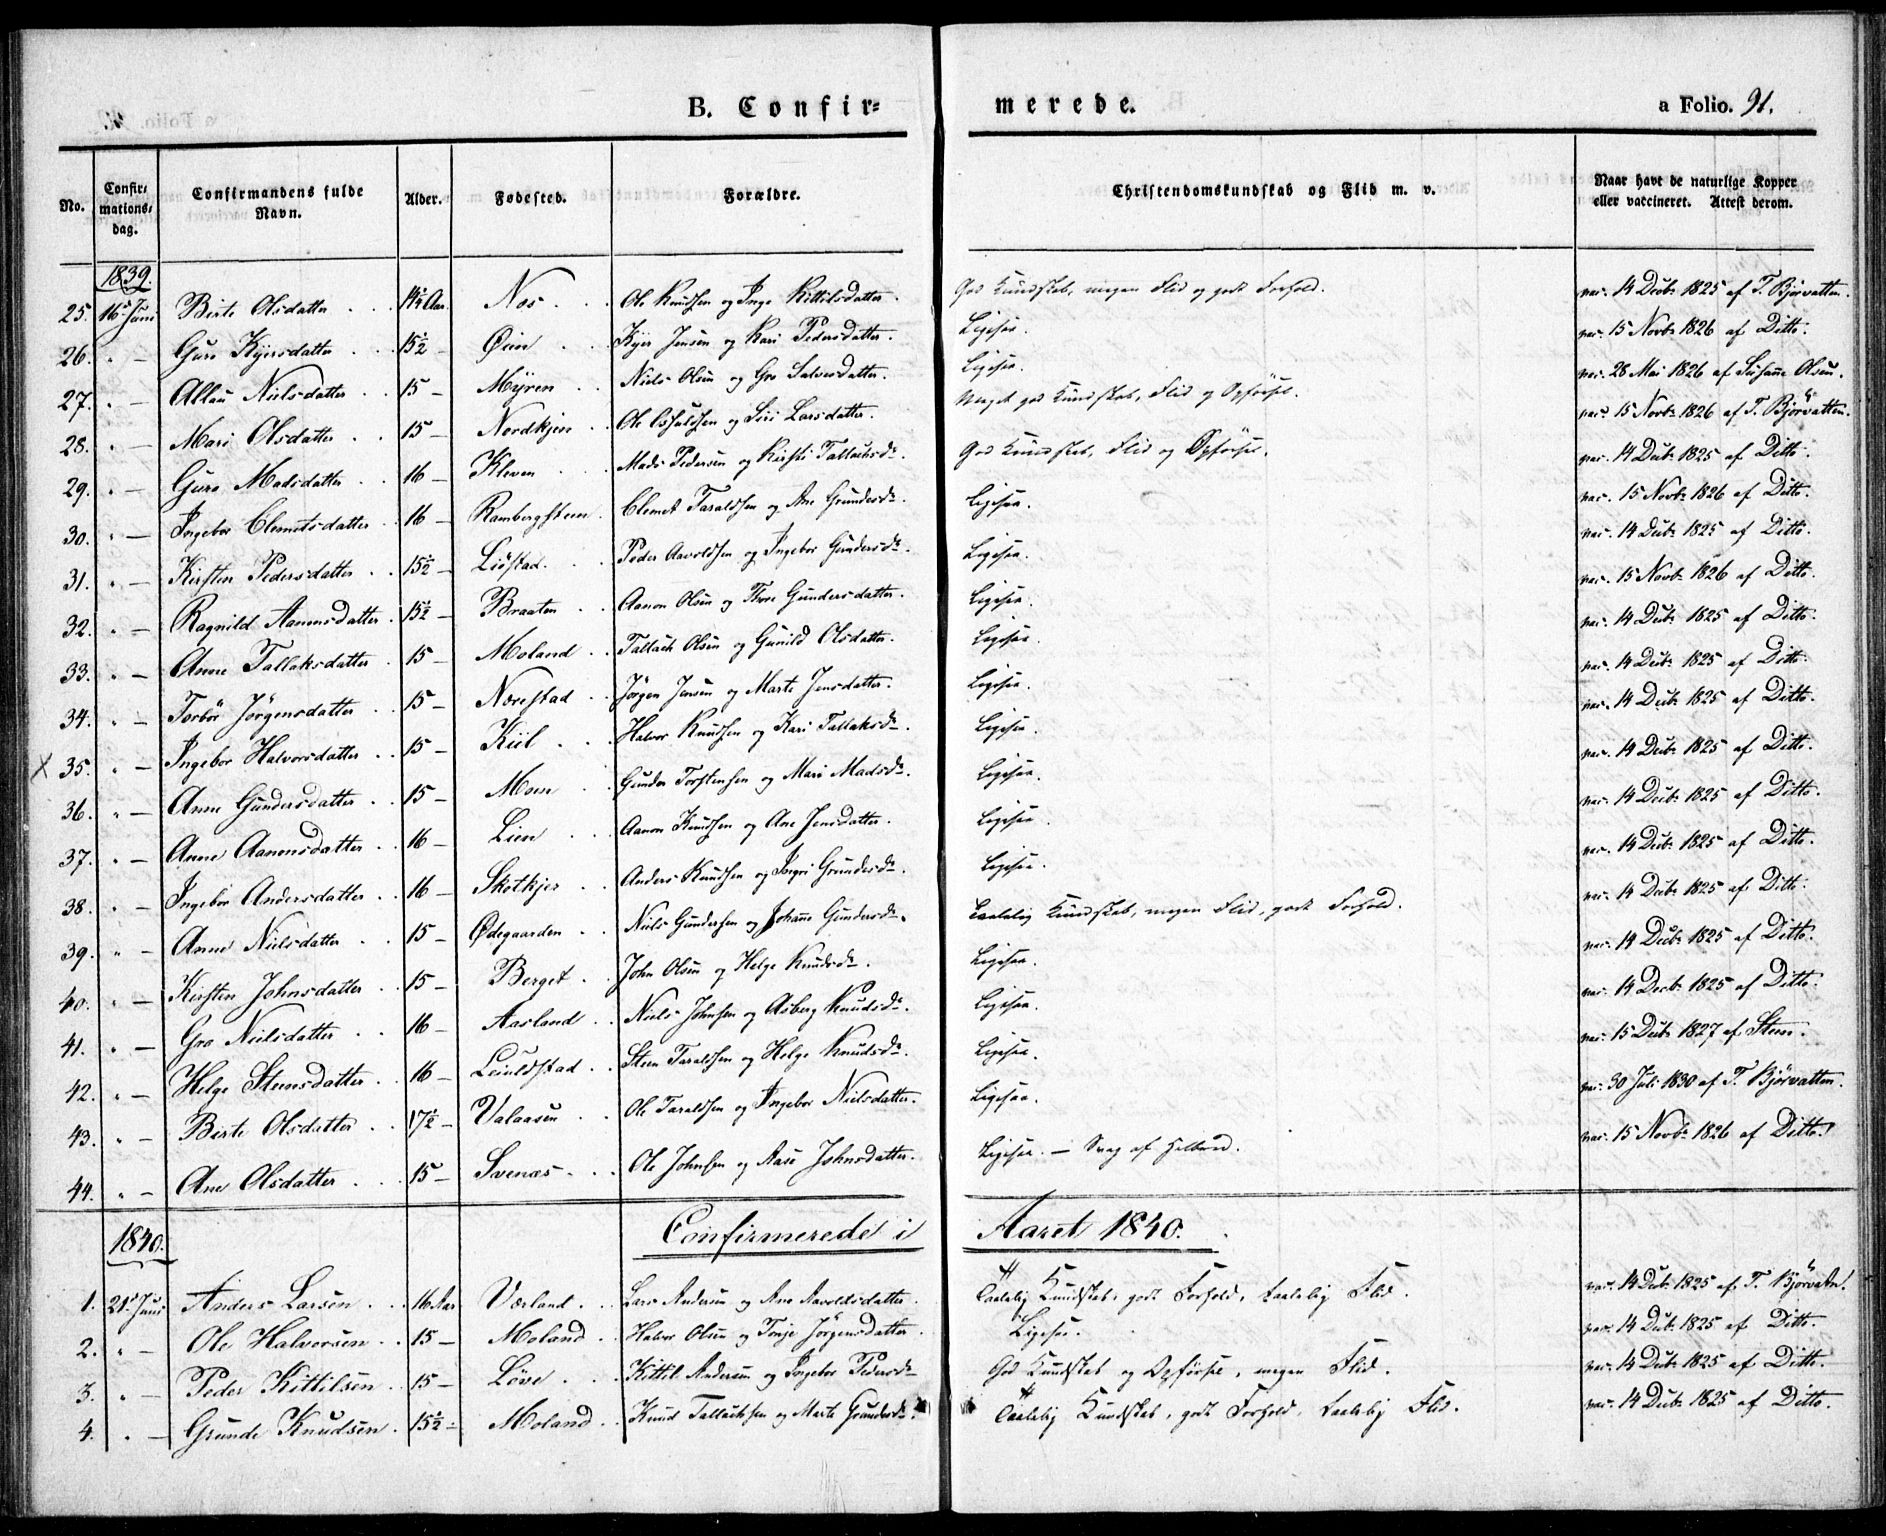 B. Confir= merede. a Folio. 91.
No. Confir= mations= dag. Confirmandens fulde Navn. Alder. Fødested. Forældre. Christendomskundskab og Flid m. v. Naar havt de naturlige Kopper eller vaccineret. Attest derom.
1839.
25. 16de Juni Birte Olsdatter 14½ Aar. Næs Ole Knudsen og Inge Kittilsdatter. God Kundskab, megen Flid og godt Forhold. vac. 14 Decbr 1825 af T. Bjørvatten.
26. " — Guro Kyersdatter 15½ Øien Kyer Jensen og Kari Pedersdatter. Ligesaa. vac. 15 Novbr 1826 af Ditto.
27. " — Allau Nielsdatter 15 — Myren Niels Olsen og Gro Salvesdatter. Ligesaa. vac. 28 Mai 1826 af Susanne Olsen.
28. " — Mari Olsdatter 15 — Nordkjen Ole Osuldsen og Siri Larsdatter. Meget god Kundskab, Flid og Opførsel. vac. 15 Novbr 1826 af T. Bjørvatten.
29. " — Guro Madsdatter 16 — Kleven Mads Pedersen og Kirsti Tallaksdr. God Kundskab, Flid og Opførsel. vac. 14 Decbr 1825 af Ditto.
30. " — Ingebor Clemetsdatter 16 — Rambergsteen Clemet Taraldsen og Ane Grundesdr. Ligesaa. vac. 15 Novbr 1826 af Ditto.
31. " — Kirsten Pedersdatter 15½ — Liøstad Peder Aavoldsen og Ingebor Gundersdr. Ligesaa. vac. 14 Decbr 1825 af Ditto.
32. " — Ragnild Aanonsdatter 15½ — Braaten Aanon Olsen og Thore Gundersdatter. Ligesaa. vac. 15 Novbr 1826 af Ditto.
33. " — Anne Tallaksdatter 15 — Moland Tallack Olsen og Gunild Olsdatter. Ligesaa. vac. 14 Decbr 1825 af Ditto.
34. " — Torbør Jørgensdatter 15 — Nærestad Jørgen Jensen og Marte Jensdatter. Ligesaa. vac. 14 Decbr 1825 af Ditto.
X 35. " — Ingebor Halvorsdatter 15 — Kiil Halvor Knudsen og Kari Tallaksdr. Ligesaa. vac. 14 Decbr 1825 af Ditto.
36. " — Anne Gundersdatter 15 — Moen Gunder Torstensen og Mari Madsdr. Ligesaa. vac. 14 Decbr 1825 af Ditto.
37. " — Anne Aanonsdatter 16 — Lien Aanon Knudsen og Ane Jensdatter. Ligesaa. vac. 14 Decbr 1825 af Ditto.
38. " — Ingebor Andersdatter 16 — Skotkjer Anders Knudsen og Ingri Grundesdr. Ligesaa. vac. 14 Decbr 1825 af Ditto.
39. " — Anne Nielsdatter 15 — Ødegaarden Niels Gundersen og Johanne Gundersdr. Taalelig Kundskab, megen Flid, godt Forhold. vac. 14 Decbr 1825 af Ditto.
40. " — Kirsten Johnsdatter 15 — Berget John Olsen og Helge Knudsdr. Ligesaa. vac. 14 Decbr 1825 af Ditto.
41. " — Gro Nielsdatter 16 — Aasland Niels Johnsen og Asberg Knudsdr. Ligesaa. vac. 14 Decbr 1825 af Ditto.
42. " — Helge Steensdatter 16 — Leiuldstad Steen Taraldsen og Helge Knudsdr. Ligesaa. vac. 15 Decbr 1827 af Steen.
43. " — Birte Olsdatter 17½ — Valaasen Ole Taraldsen og Ingebor Nielsdatter. Ligesaa. vac. 30 Juli 1830 af T. Bjørvatten.
44. " — Ane Olsdatter 15 — Svenæs Ole Johnsen og Aase Johnsdatter. Ligesaa. — Svag af Helbred. vac. 15 Novbr 1826 af Ditto.
1840. Confirmerede i Aaret 1840.
1. 21de Juni Anders Larsen 16 Aar Værland Lars Andersen og Ane Aavoldsdatter. Taalelig Kundskab, godt Forhold, taalelig Flid. vac. 14 Decbr 1825 af T. Bjørvatn.
2. " — Ole Halvorsen 15 — Moland Halvor Olsen og Tonje Jørgensdatter. Ligesaa. vac. 14 Decbr 1825 af Ditto.
3. " — Peder Kittilsen 15 — Løve Kittil Andersen og Ingebor Pedersdr God Kundskab og Opførsel, megen Flid. vac. 14 Decbr 1825 af Ditto.
4. " — Grunde Knudsen 15½ — Moland Knud Tallacksen og Marte Grundesdr. Taalelig Kundskab, godt Forhold, taalelig Flid. vac. 14 Decbr 1825 af Ditto.